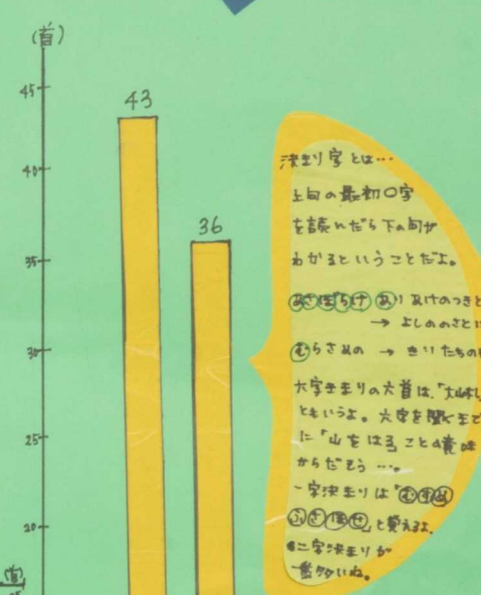 (首)
45
43
40
36
35
30
25
20
(首)
決まり字とは…
上句の最初〇字
を読んだら下の句が
わかるということだよ。
あさぼらけ あり あけのつきと
→ よしののさとに
むらさめの → きりたちの
六字きまりの六首は、「大山札」
ともいうよ。六字を聞くまで
に「山をはる」ことの意味
からだそう…。
一字決まりは「むすめ
ふさほせ」と覚えるよ。
二字決まりが
一番多いね。